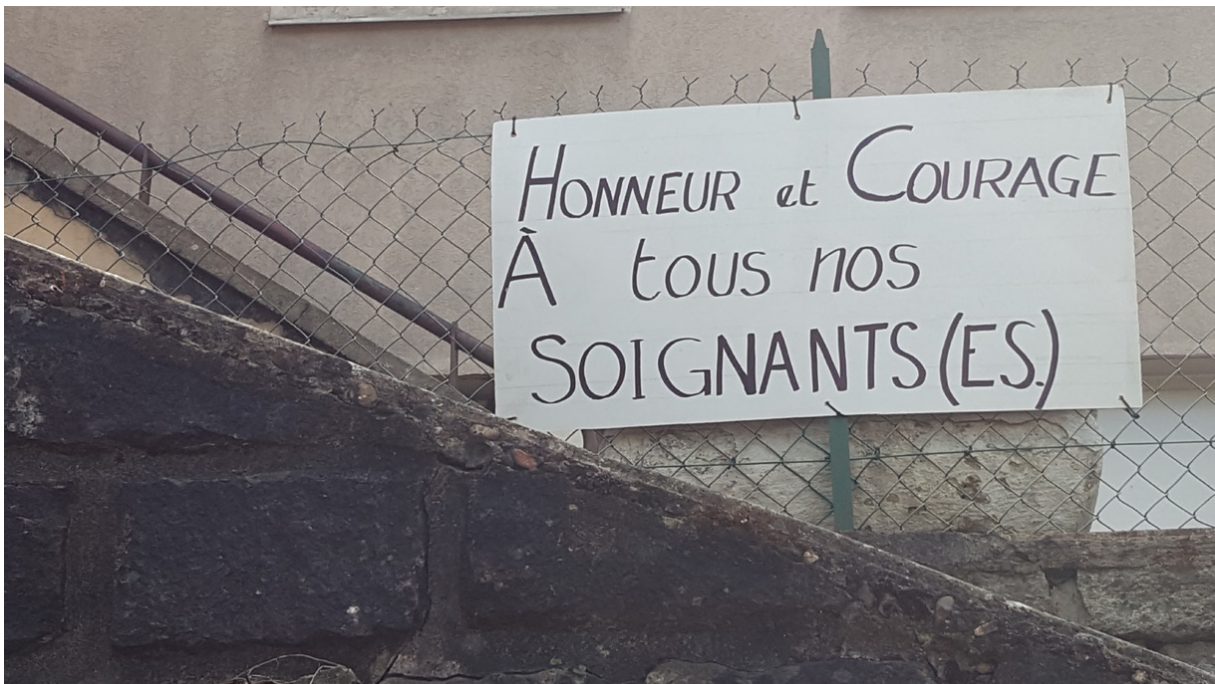 HONNEUR et COURAGE
À tous nos
SOIGNANTS(ES.)